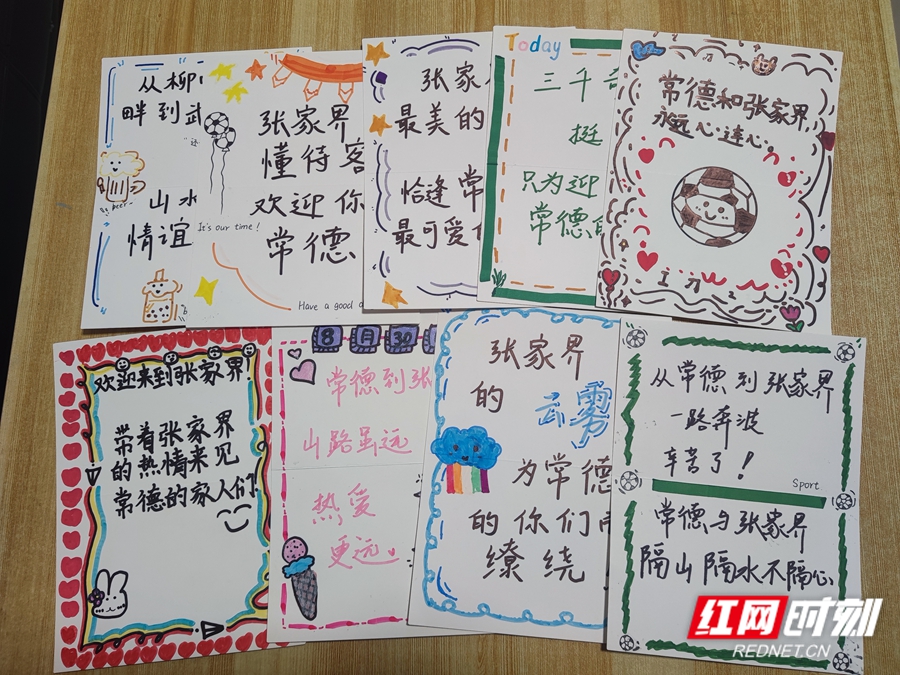 从柳
畔到武
山水
情谊
beer
张家界
懂待客
欢迎你
常德
It's our time!
Have a good d
张家
最美的
恰逢常
最可爱
Today
三千
挺
只为迎
常德
常德和张家界,
永远心连心。
欢迎来到张家界!
带着张家界
的热情来见
常德的家人们
8月30
常德到张
山路虽远
热爱
更远
张家界
的云雾
为常德
的你们
缭绕
从常德到张家界
一路奔波
辛苦了!
Sport
常德与张家界
隔山隔水不隔心
红网时刻
REDNET.CN